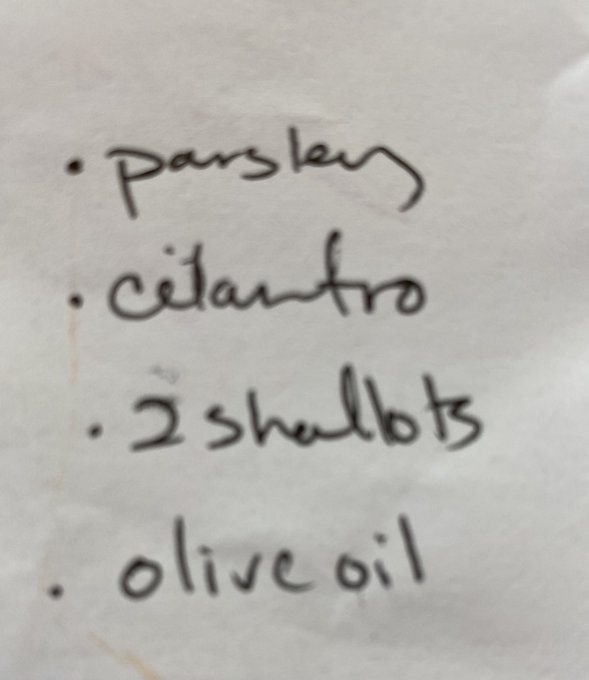 • parsley
• cilantro
• 2 shallots
• olive oil